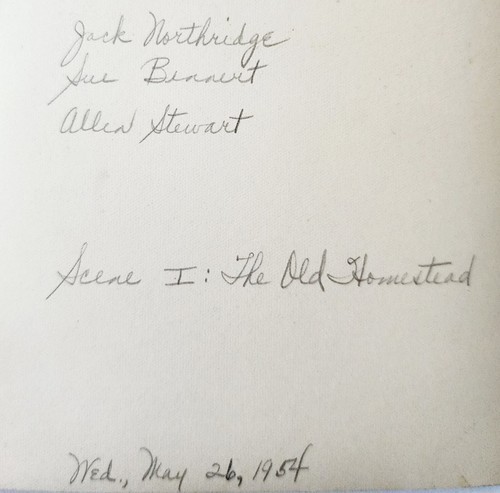 Jack Northridge
Sue Bennert
Allen Stewart
Scene I: The Old Homestead
Wed., May 26, 1954